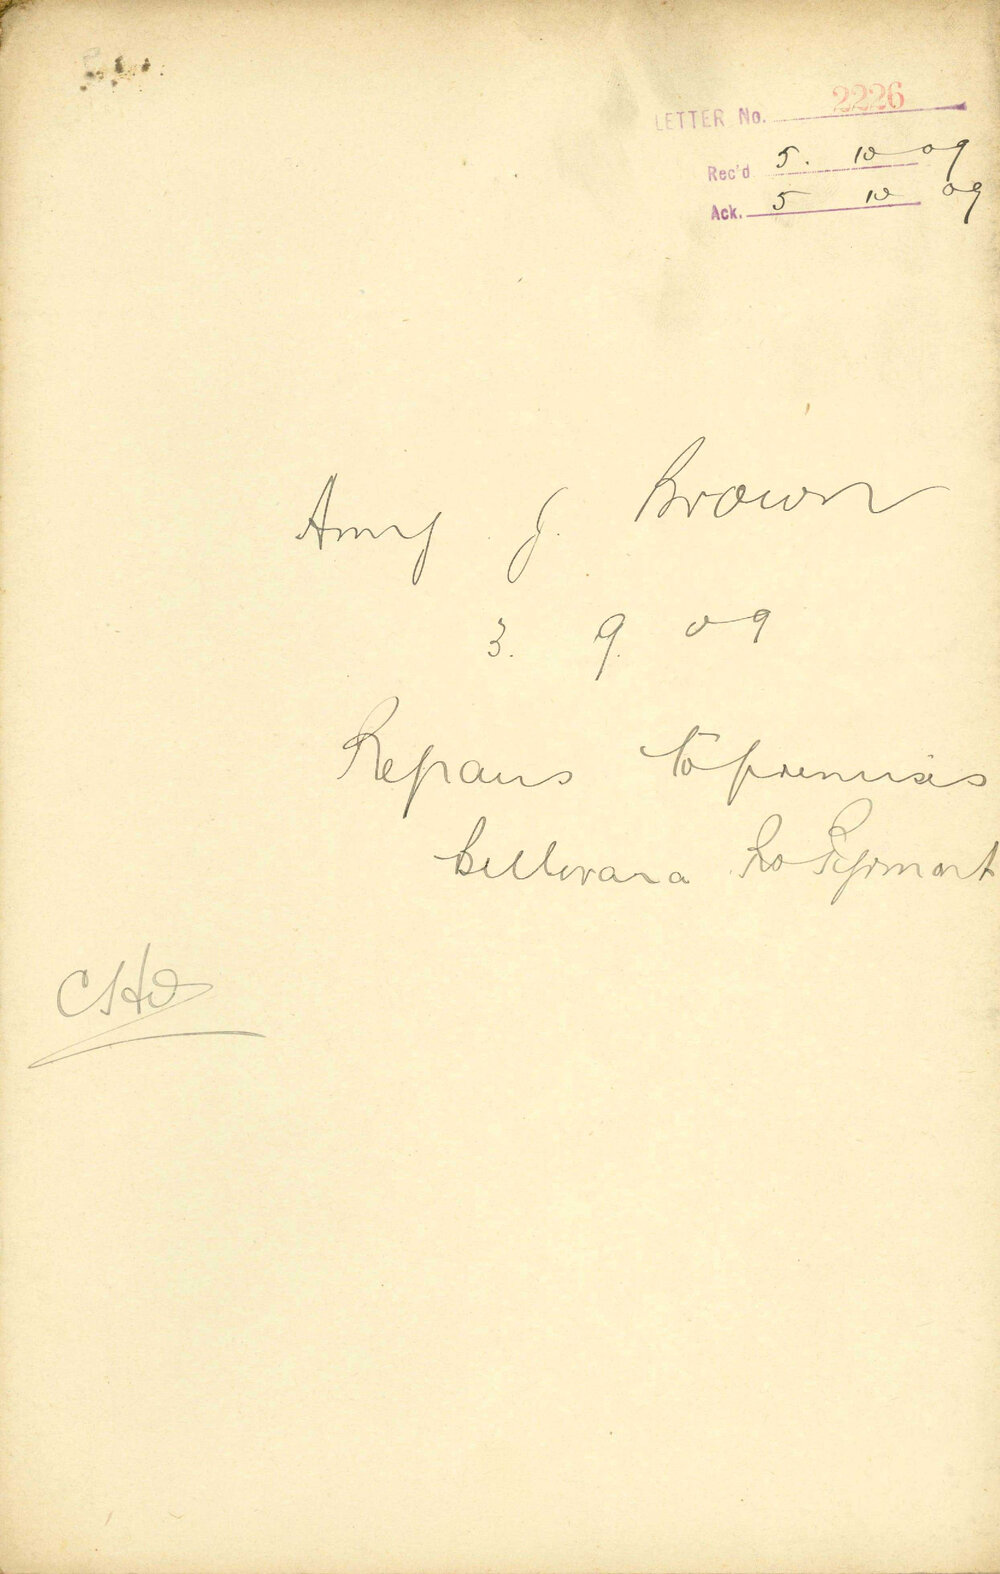 LETTER No. 2226
Rec'd 5. 10 09
Ack. 5 10 09
Amy J. Brown
3. 9. 09
Repairs to premises
Bellevara Rd